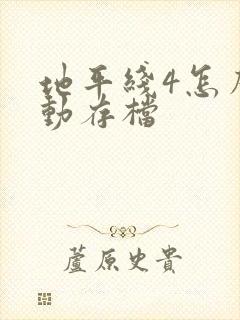 地平綫4怎
動存檔
蘆原史貴